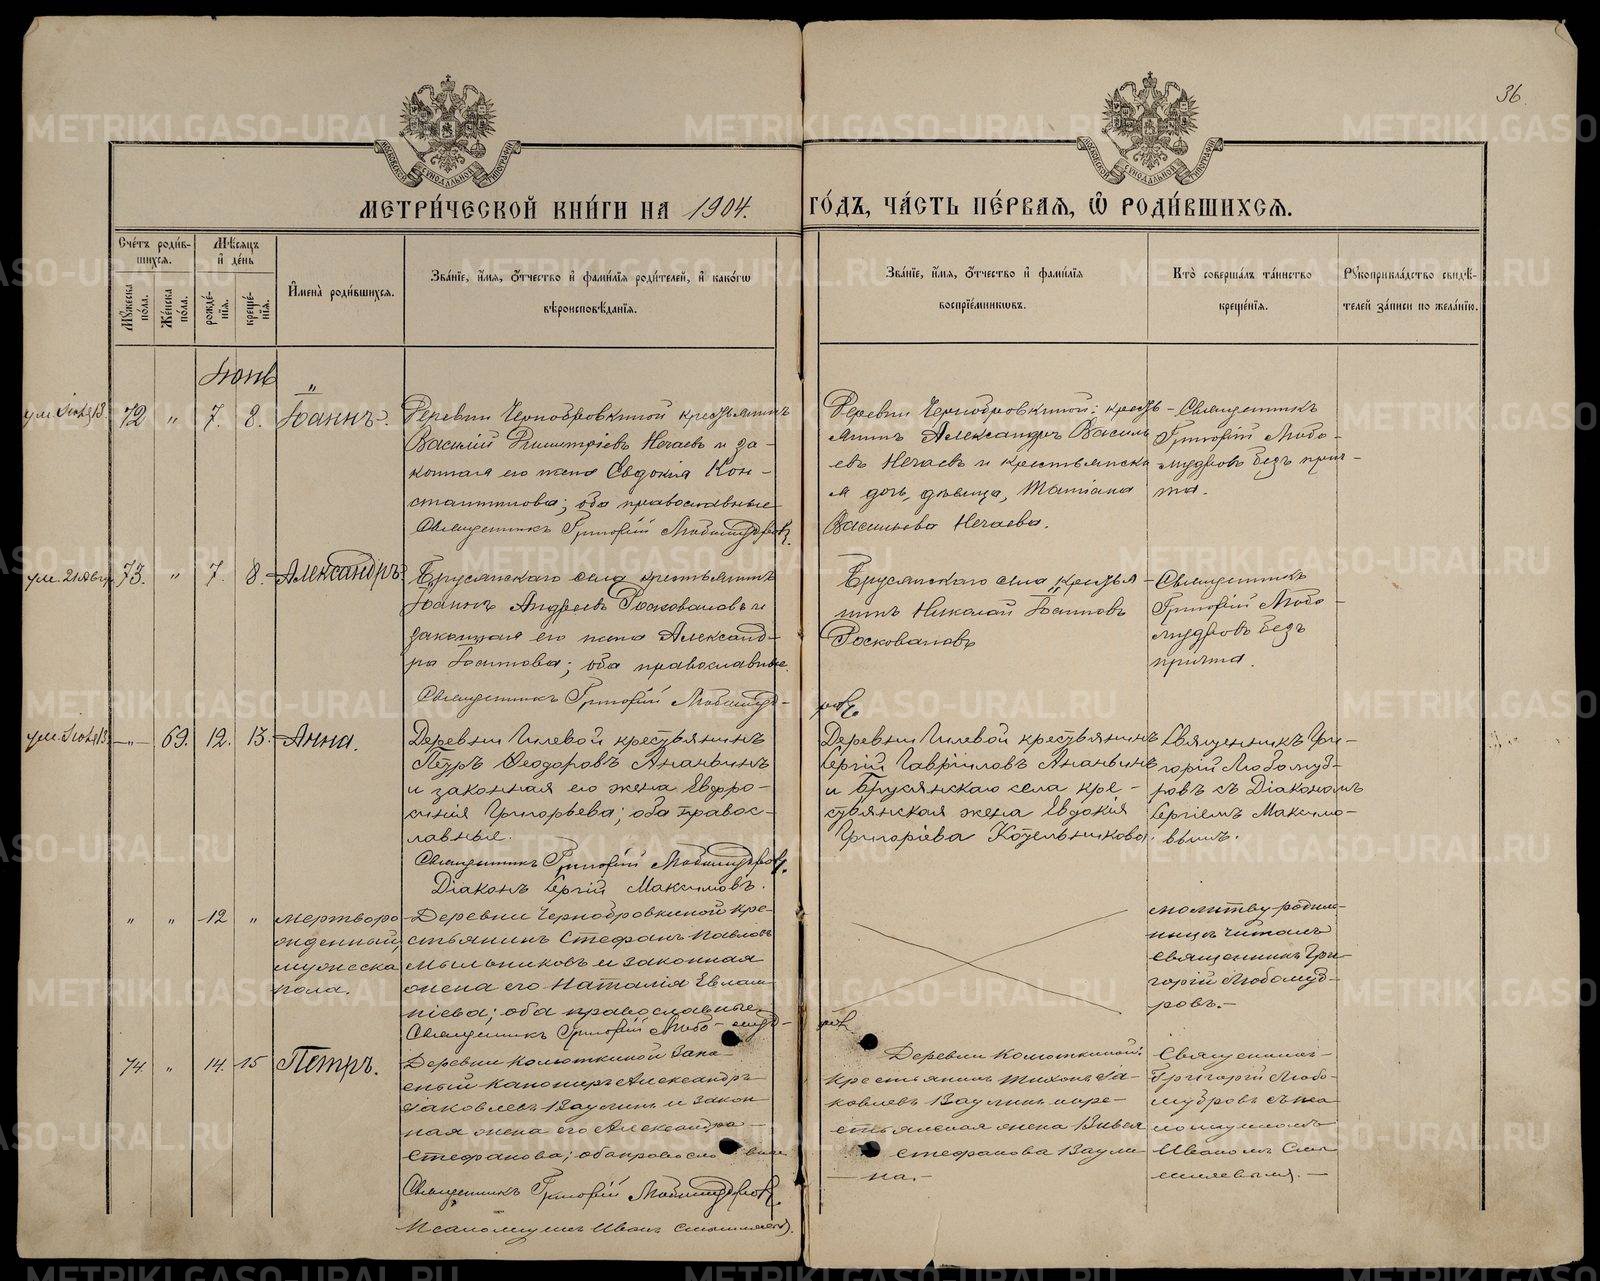 36
МЕТРИ́ЧЕСКОЙ КНИ́ГИ НА 1904. ГО́ДЪ, ЧА́СТЬ ПЕ́РВАЯ, Ѡ РОДИ́ВШИХСЯ.
Сче́тъ роди́в-
шихся.
Мꙋжеска по́ла.
Же́нска по́ла.
Мѣ́сяцъ
и҆ де́нь
рожде́-
нїя.
креще́-
нїя.
И҆мена̀ роди́вшихся.
Зва́нїе, и҆́мя, ѻ҆́тчество и҆ фами́лїя роди́телей, и҆ како́гѡ
вѣроисповѣ́данїя.
Зва́нїе, и҆́мя, ѻ҆́тчество и҆ фами́лїя
воспрїе́мникѡвъ.
Кто̀ соверша́лъ та́инство
креще́нїя.
Рꙋкоприкла́дство свидѣ́-
телей за́писи по жела́нїю.
Іюнь
ум. Іюля 13.
72 " 7. 8. Іоаннъ.
Деревни Чернобровкиной крестьянинъ
Василій Димитріевъ Нечаевъ и за-
конная его жена Евдокія Кон-
стантинова; оба православные
Священникъ Григорій Любомудровъ.
Деревни Чернобровкиной: кресть-
янинъ Александръ Василь
евъ Нечаевъ и крестьянска
я дочь, дѣвица, Татіана
Васильева Нечаева.
Священникъ
Григорій Любо-
мудровъ безъ прич-
та.
ум. 21 Авг.
73. " 7. 8. Александръ.
Брусянскаго села крестьянинъ
Іоаннъ Андреевъ Росковаловъ и
законная его жена Александ-
ра Іоаннова; оба православные.
Священникъ Григорій Любомуд-
ровъ
Брусянскаго села крестья
нинъ Николай Іоанновъ
Росковаловъ
Священникъ
Григорій Любо-
мудровъ безъ
причта.
ум. Іюля 13.
—"— 69. 12. 13. Анна.
Деревни Гилевой крестьянинъ
Петръ Ѳеодоровъ Ананьинъ
и законная его жена Евфро-
синія Григорьева; оба правос-
лавные.
Священникъ Григорій Любомудровъ.
Діаконъ Сергій Максимовъ.
Деревни Гилевой крестьянинъ
Сергій Гавріиловъ Ананьинъ
и Брусянскаго села кре-
стьянская жена Евдокія
Григоріева Котельникова.
Священникъ Гри-
горій Любомуд-
ровъ съ Діакономъ
Сергіемъ Максимо-
вымъ.
" " 12 " мертворо
жденный,
мужеска
пола.
Деревни Чернобровкиной кре-
стьянинъ Стефанъ Павловъ
Мыльниковъ и законная
жена его Наталія Евлам-
піева; оба православные.
Священникъ Григорій Любомуд-
ровъ
молитву родил-
ницѣ читалъ
священникъ Гри-
горій Любомуд-
ровъ.-
74 " 14. 15 Петръ.
Деревни Колюткиной запа-
сный канониръ Александръ
Іаковлевъ Ваулинъ и закон
ная жена его Александра
Стефанова;
Священникъ Григорій Любомудровъ.
Псаломщикъ Иванъ
Деревни Колюткиной:
крестьянинъ Тихонъ Іа-
ковлевъ Ваулинъ и кре-
стьянская жена
СтефановаВаули
на.-
Священникъ
Григорій Любо-
мудровъ съ пса
ломщикомъ
Иваномъ
METRIKI.GASO-URAL.RU